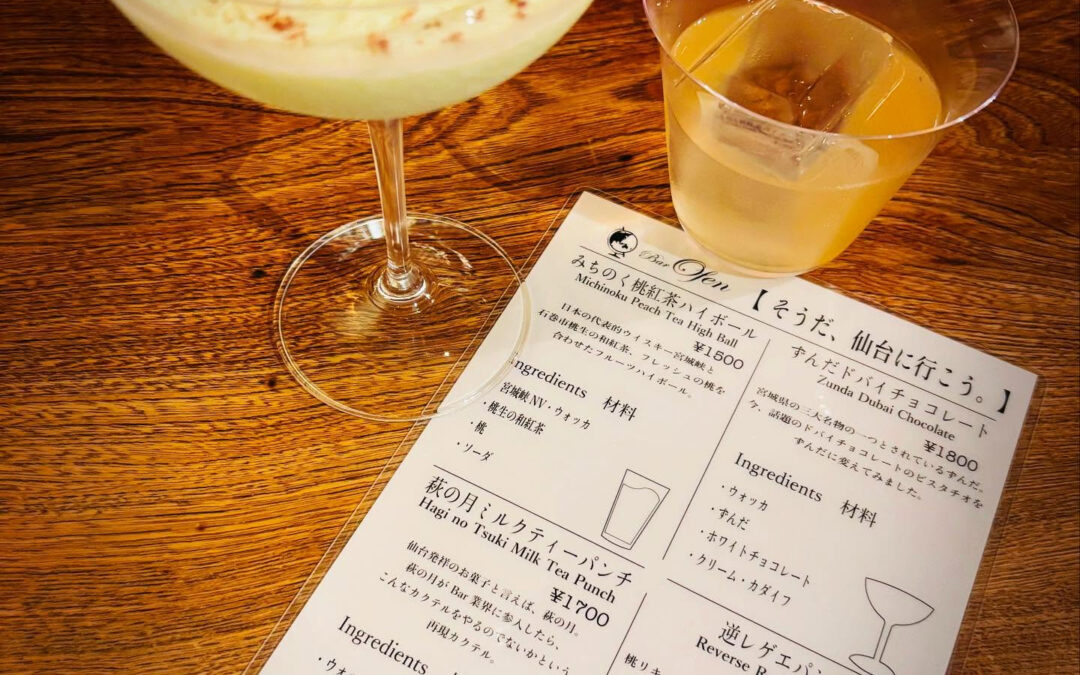 Bar Osen
【そうだ、仙台に行こう。】
みちのく桃紅茶ハイボール
Michinoku Peach Tea High Ball
¥1500
日本の代表的ウィスキー宮城峡と
石巻市桃生の和紅茶、フレッシュの桃を
合わせたフルーツハイボール。
Ingredients 材料
・宮城峡NV・ウォッカ
・桃生の和紅茶
・桃
・ソーダ
ずんだドバイチョコレート
Zunda Dubai Chocolate
¥1800
宮城県の三大名物の一つとされているずんだ。
今、話題のドバイチョコレートのピスタチオを
ずんだに変えてみました。
Ingredients 材料
・ウォッカ
・ずんだ
・ホワイトチョコレート
・クリーム・カダイフ
萩の月ミルクティーパンチ
Hagi no Tsuki Milk Tea Punch
¥1700
仙台発祥のお菓子と言えば、萩の月。
萩の月がBar業界に参入したら、
こんなカクテルをやるのでないかという
再現カクテル。
Ingredients
・ウォ
逆レゲエパン
Reverse R
桃リキ